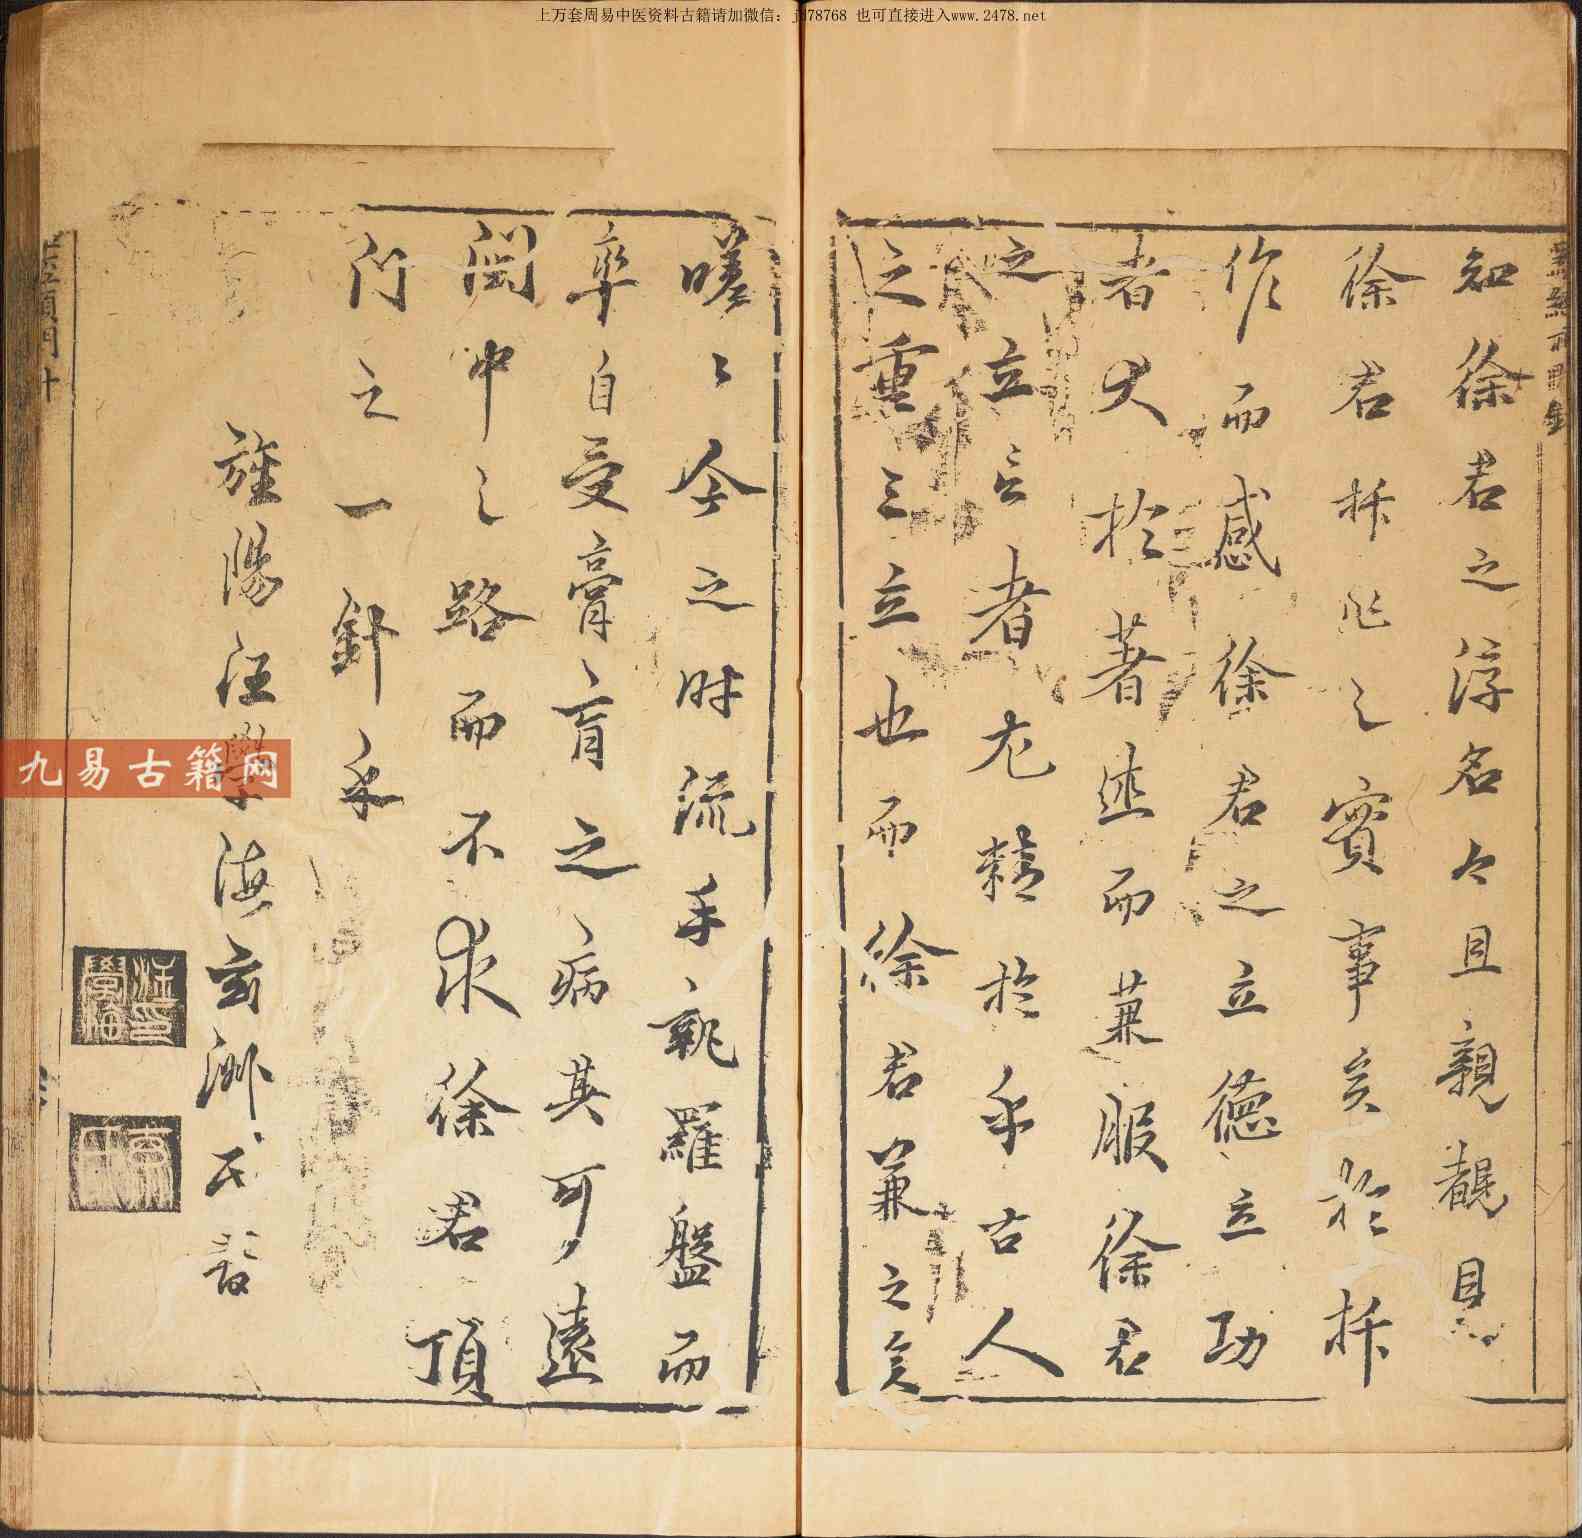 上万套周易中医资料古籍请加微信: j478768 也可直接进入www.2478.net
知徐君之淳名々且親覩見
徐君拆非之實事矣於拆
作而感徐君之立德立功
者大於著述而兼服徐君
之立言者尤精於乎古人
之重三立也而徐君兼之矣
嗟〻今之時流手執羅盤而
率自受膏肓之病其可遠
閩中之路而不求徐君頂
門之一針乎
旌陽汪學海玄洲氏
汪印學海
九易古籍网